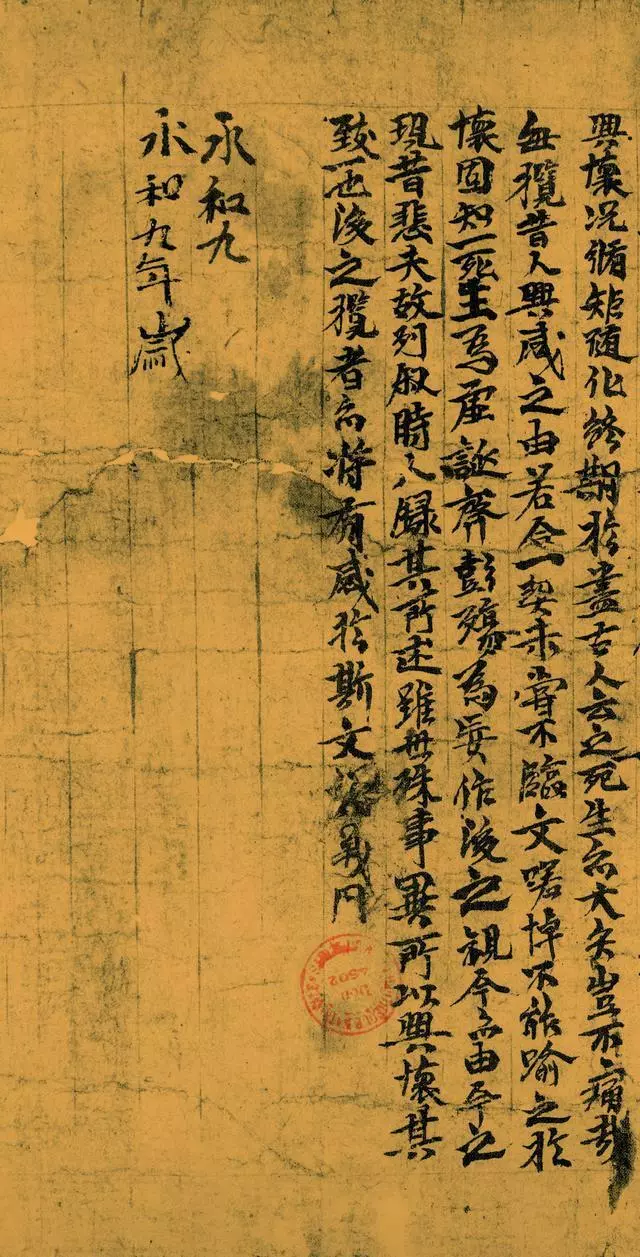 興懷况脩矩随化終期扵盡古人云之死生亦大矣豈不痛哉
每攬昔人興感之由若合一契未甞不臨文嗟悼不能喻之扵
懷固知一死生為虛誕齊彭殤為妄作後之視今亦由今之
視昔悲夫故列叙時人録其所述雖世殊事異所以興懷其
致一也後之攬者亦将有感扵斯文
永和九
永和九年歲
DON
4502